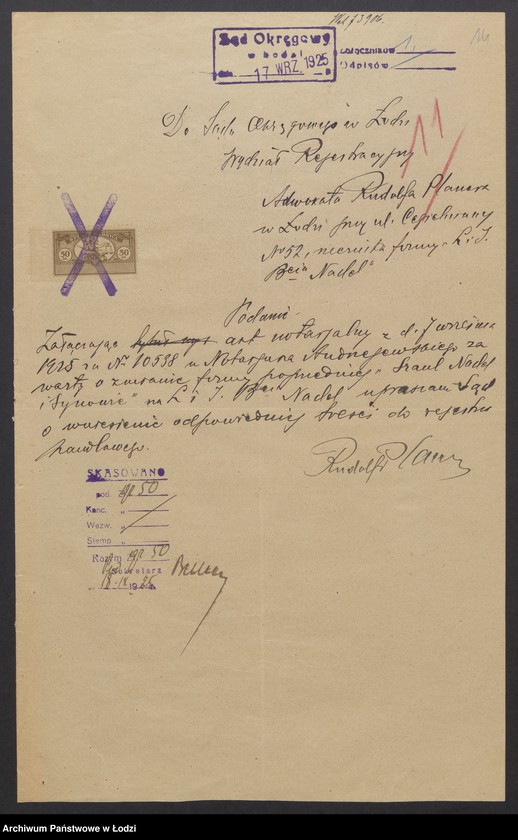 Sąd Okręgowy
w Łodzi
dn. 17 WRZ. 1925
Załączników 1
Odpisów
Do Sądu Okręgowego w Łodzi
Wydział Rejestracyjny
11
Adwokata Rudolfa Planera
w Łodzi przy ul. Cegielnianej
No 52, firmy "L. i J.
Bcia Nadel"
50 50
Podanie
Załączając akt notarjalny z d. 7 września
1925 za No 10538 u Notarjusza Andrzejewskiego za
warty o zmianie firmy poprzedniej "Sraul Nadel
i Synowie" na "L i J. Bcia Nadel" upraszam Sąd
o wniesienie odpowiedniej treści do rejestru
handlowego.
Rudolf Planer
SKASOWANO
pod. gr 50
Kanc. "
Wezw. "
Stemp. "
Razem gr 50
Sekretarz
18.IX 1925
Archiwum Państwowe w Łodzi